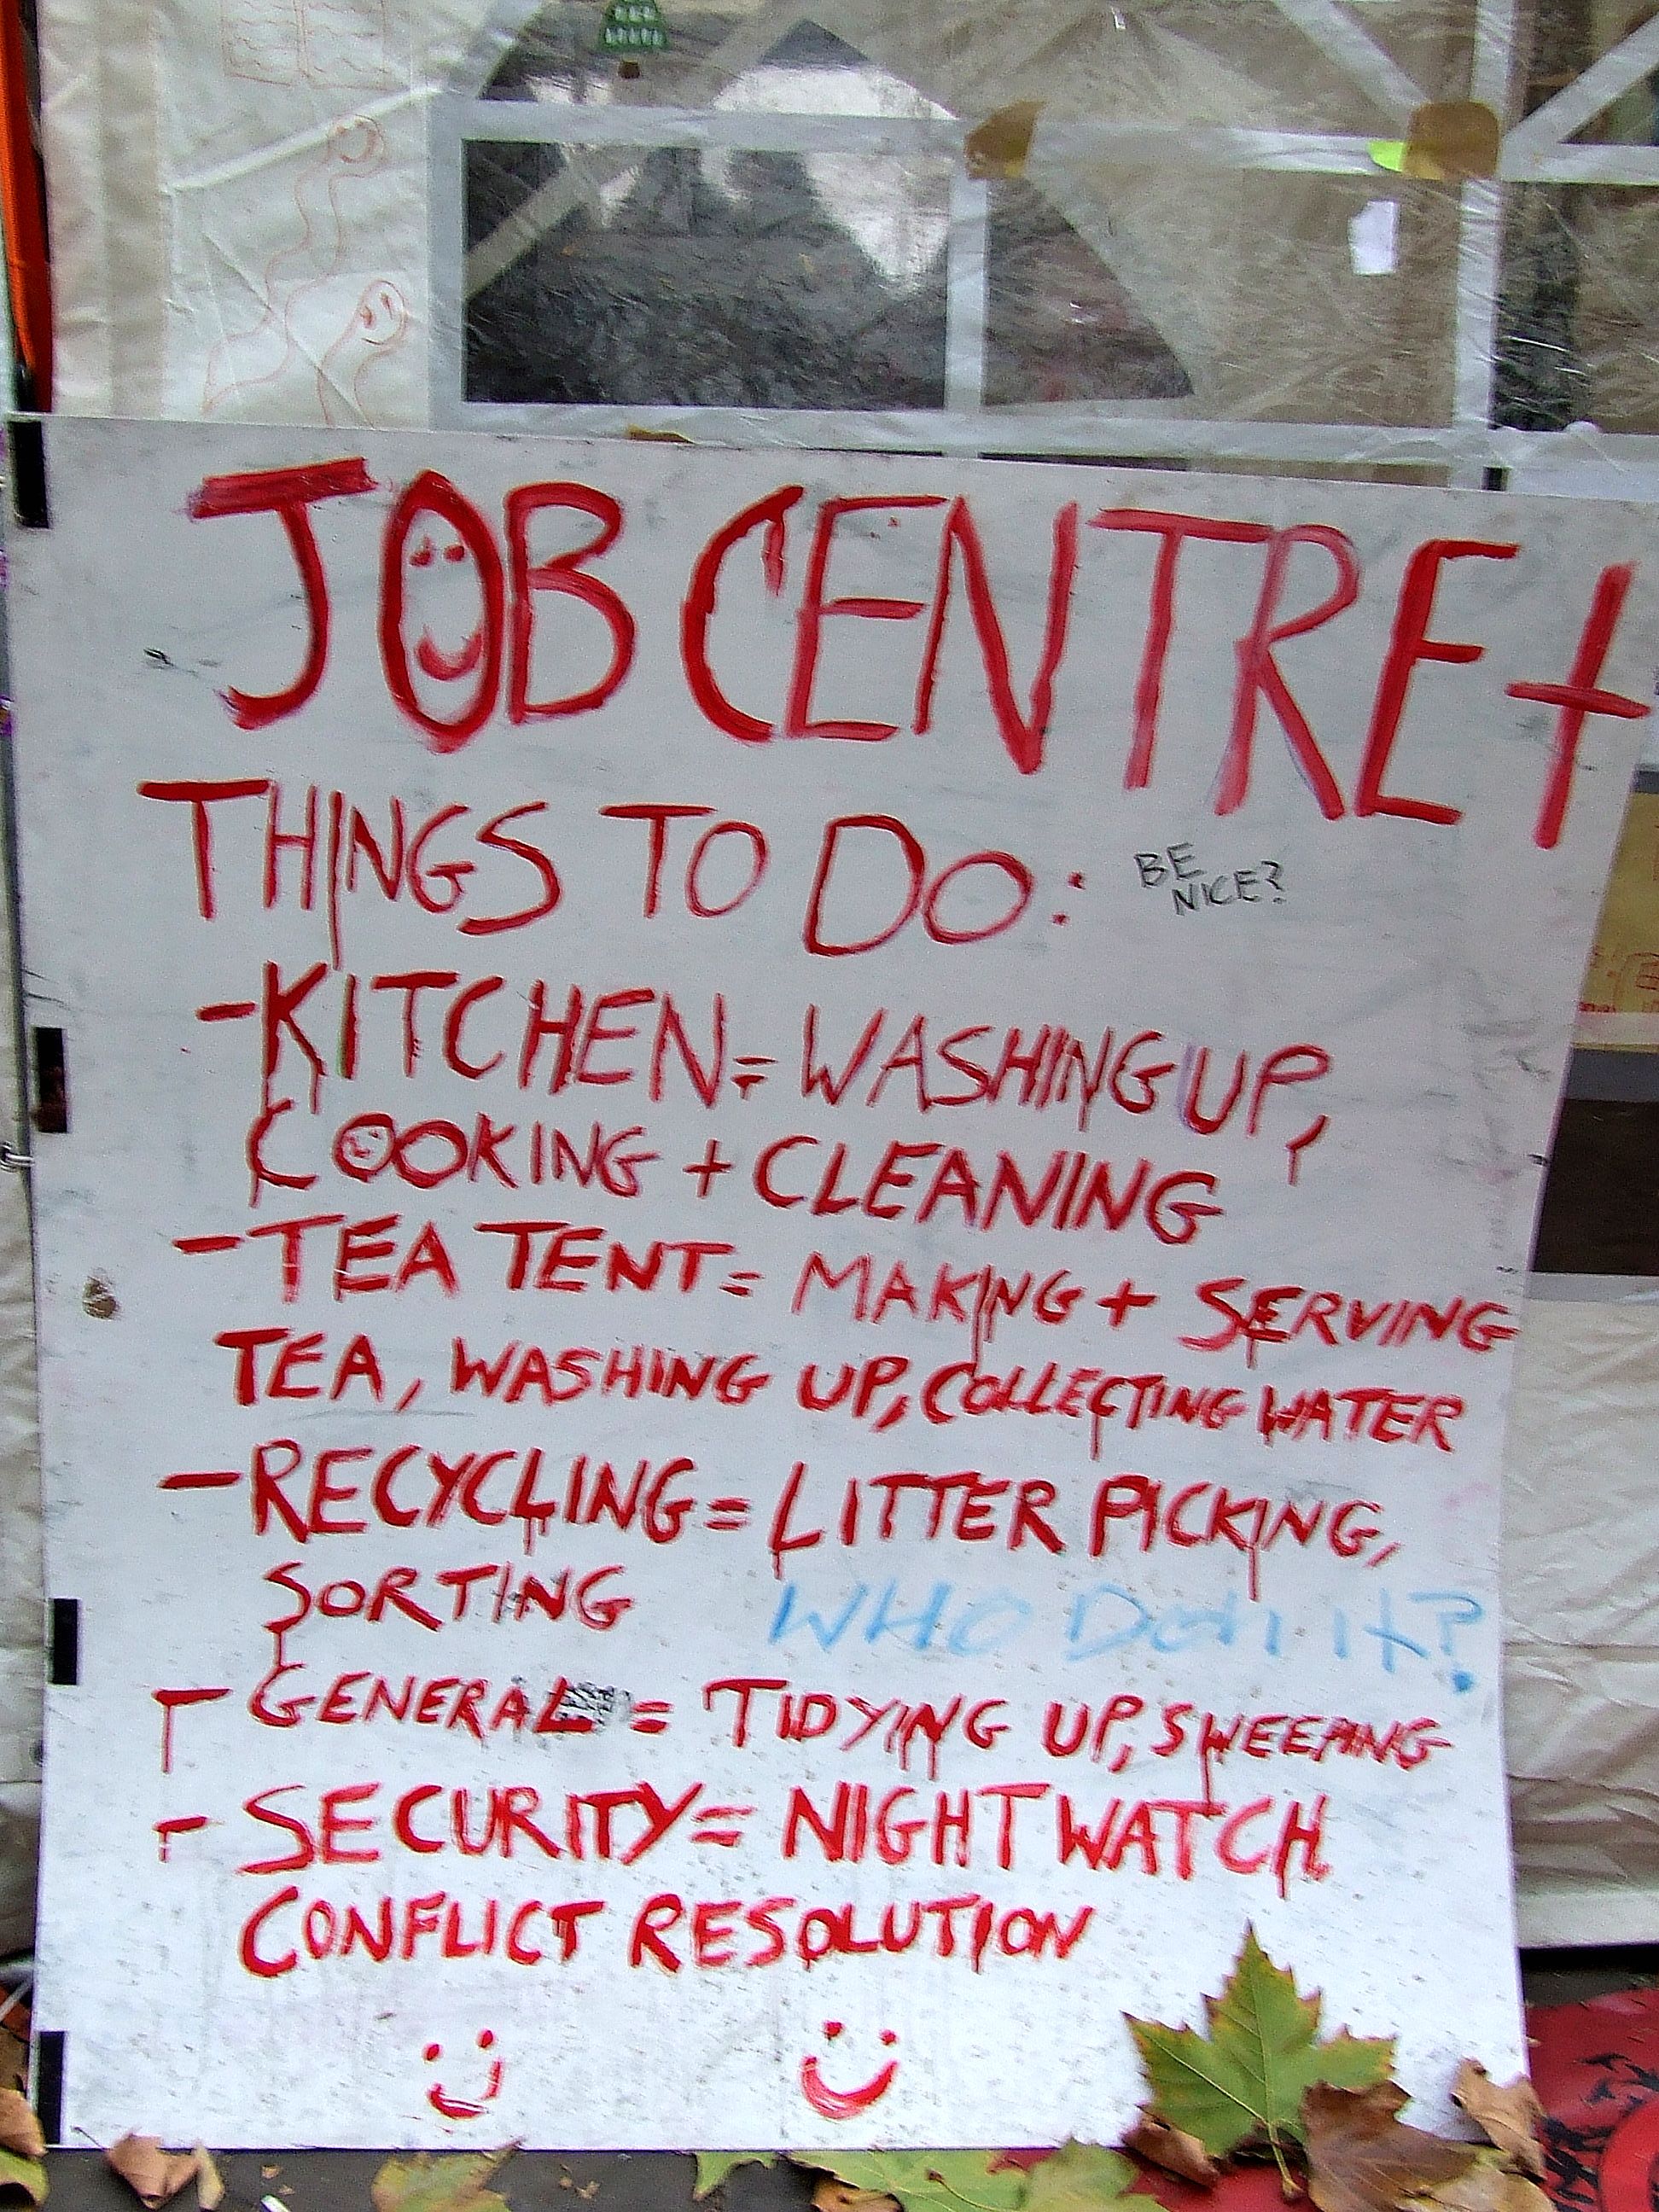 JOB CENTRE+
THINGS TO DO:
BE
NICE?
-KITCHEN= WASHING UP,
COOKING + CLEANING
-TEA TENT= MAKING + SERVING
TEA, WASHING UP, COLLECTING WATER
-RECYCLING= LITTER PICKING,
SORTING
WHO DOH IT?
- GENERAL = TIDYING UP, SWEEPING
- SECURITY= NIGHT WATCH
CONFLICT RESOLUTION